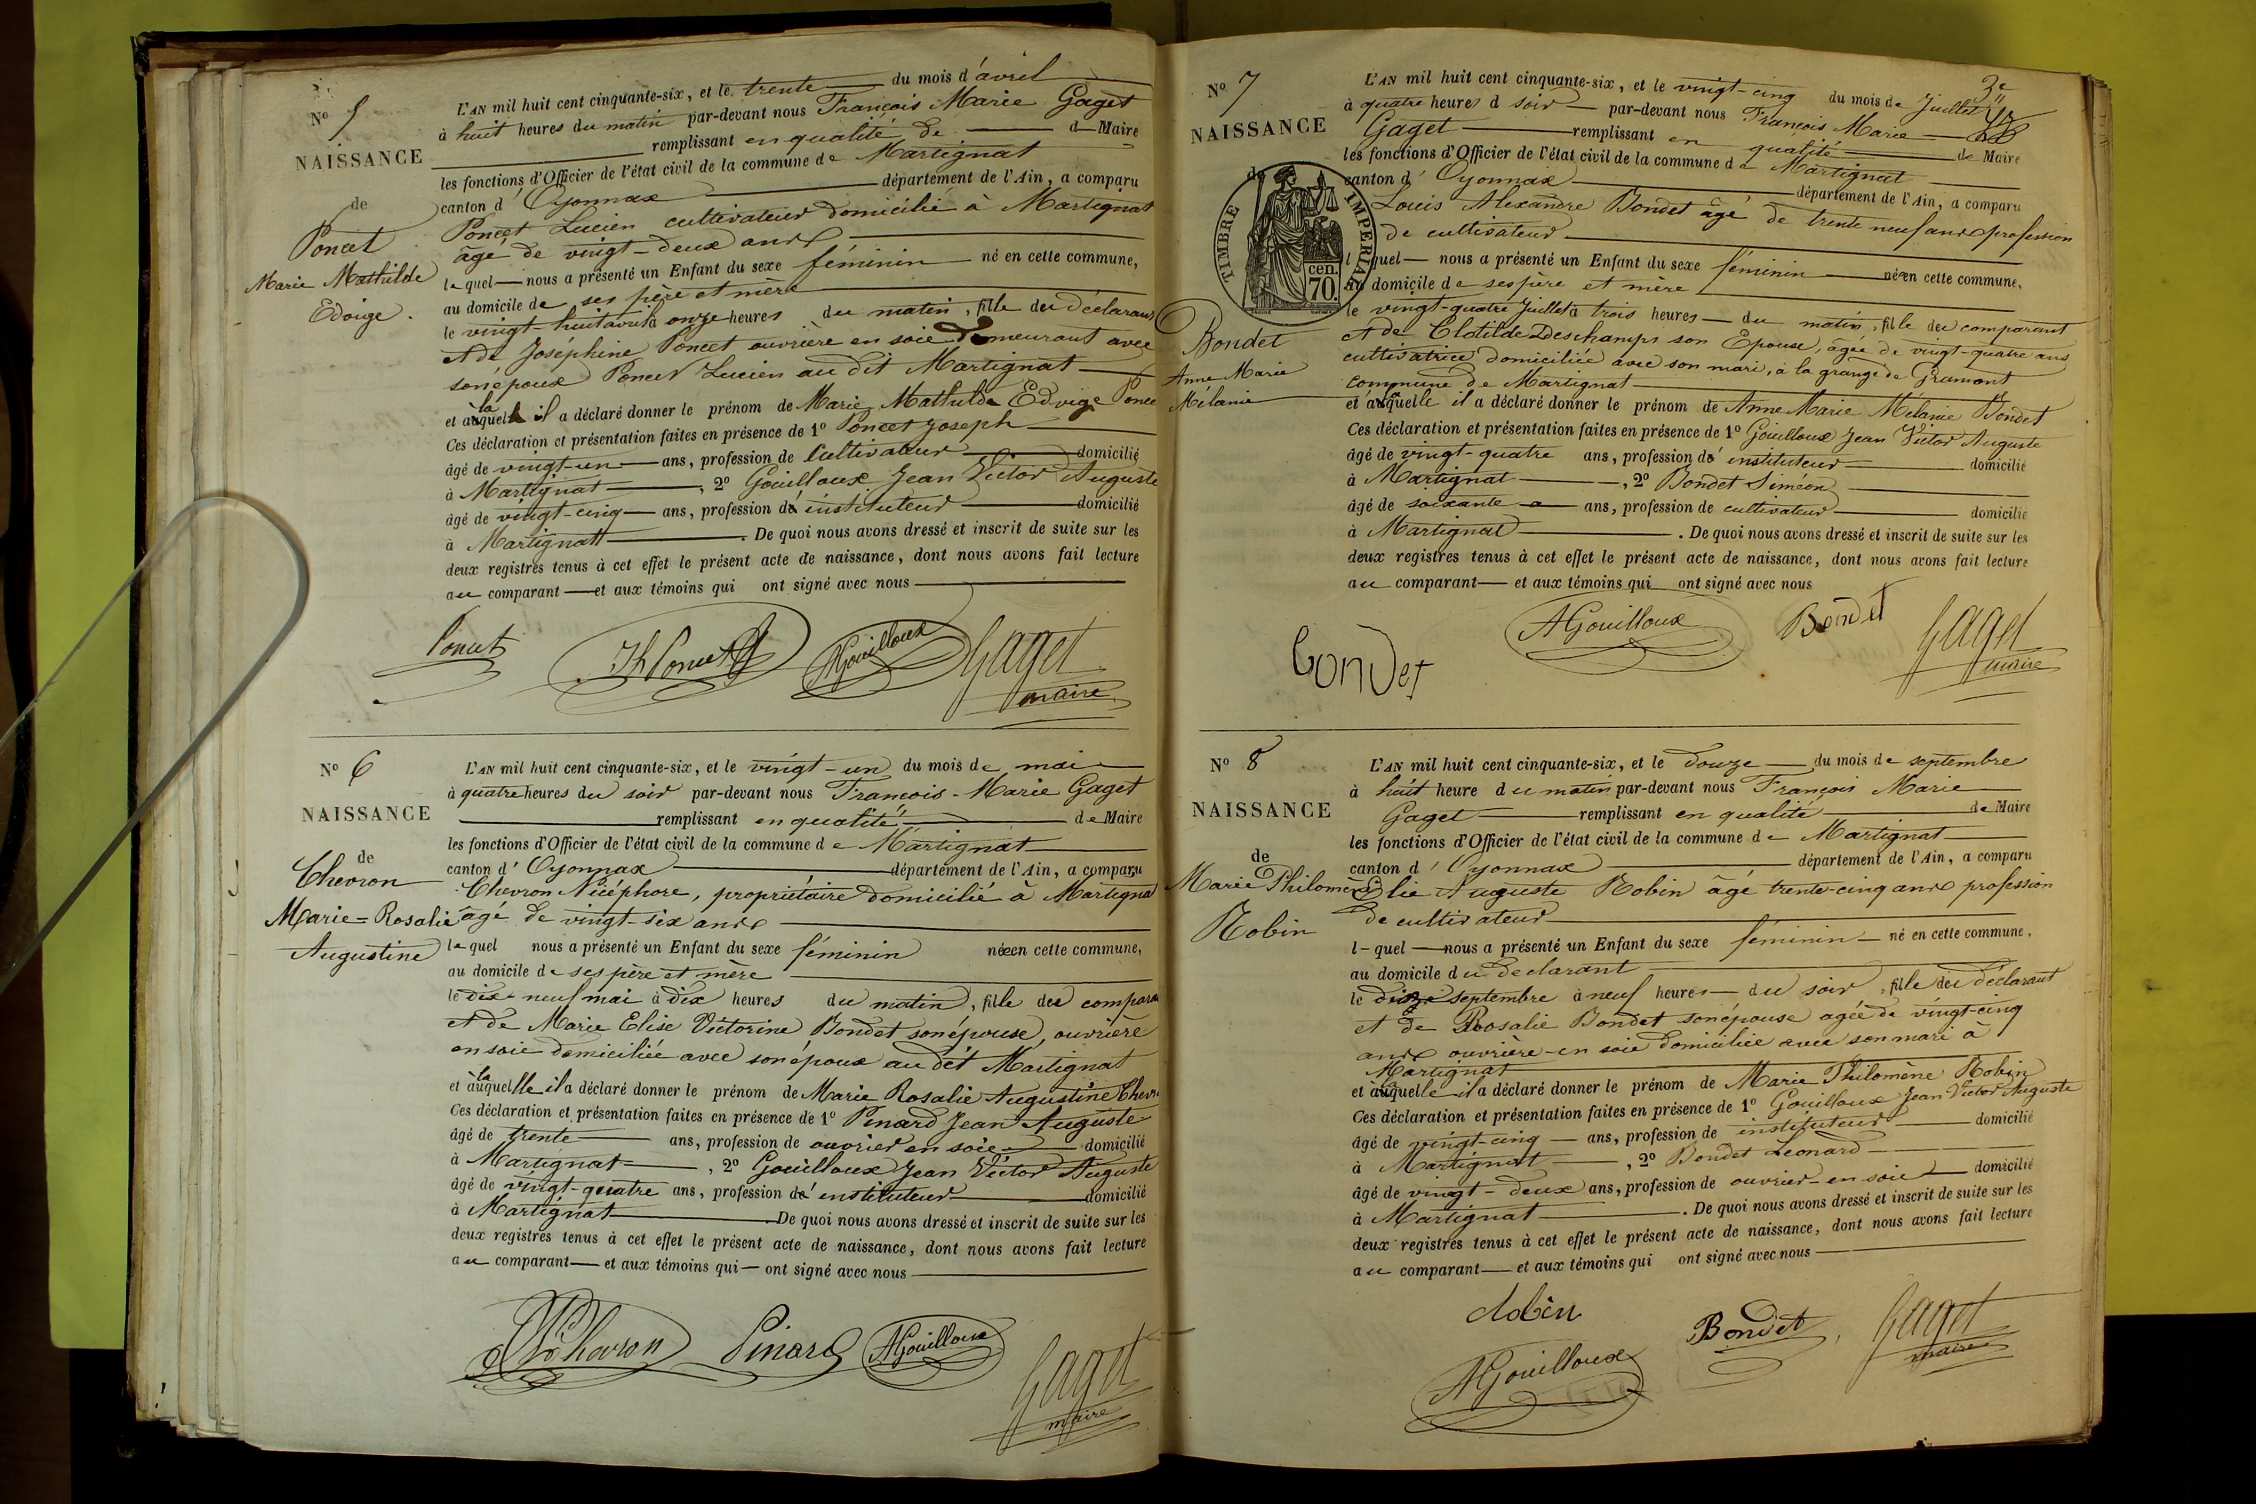 N° 5
NAISSANCE
de
Poncet
Marie Mathilde
Edvige.
L'AN mil huit cent cinquante-six, et le trente du mois d'avril
à huit heures du matin par-devant nous François Marie Gaget
remplissant en qualité de d Maire
les fonctions d'Officier de l'état civil de la commune de Martignat
canton d'Oyonnax département de l'Ain, a comparu
Poncet Lucien cultivateur domicilié à Martignat
âgé de vingt-deux ans
lequel nous a présenté un Enfant du sexe féminin né en cette commune,
au domicile de ses père et mère
le vingt-huit avril à onze heures du matin, fille du déclarant
et de Joséphine Poncet ouvrière en soie demeurant avec
son époux Poncet Lucien au dit Martignat
et à laquelle il a déclaré donner le prénom de Marie Mathilde Edvige Poncet
Ces déclaration et présentation faites en présence de 1° Poncet Joseph
âgé de vingt-un ans, profession de Cultivateur domicilié
à Martignat, 2° Gouilloux Jean Victor Auguste
âgé de vingt-cinq ans, profession d'instituteur domicilié
à Martignat. De quoi nous avons dressé et inscrit de suite sur les
deux registres tenus à cet effet le présent acte de naissance, dont nous avons fait lecture
au comparant et aux témoins qui ont signé avec nous
Poncet Jh Poncet AGouilloux Gaget
maire
N° 6
NAISSANCE
de
Chevron
Marie=Rosalie
Augustine
L'AN mil huit cent cinquante-six, et le vingt-un du mois de mai
à quatre heures du soir par-devant nous François-Marie Gaget
remplissant en qualité de Maire
les fonctions d'Officier de l'état civil de la commune de Martignat
canton d'Oyonnax département de l'Ain, a comparu
Chevron Nicéphore, propriétaire domicilié à Martignat
âgé de vingt-six ans
lequel nous a présenté un Enfant du sexe féminin née en cette commune,
au domicile de ses père et mère
le dix-neuf mai à dix heures du matin, fille du comparant
et de Marie Elise Victorine Bondet son épouse, ouvrière
en soie domiciliée avec son époux au dit Martignat
et à laquelle il a déclaré donner le prénom de Marie Rosalie Augustine Chevron
Ces déclaration et présentation faites en présence de 1° Pinard Jean Auguste
âgé de trente ans, profession de ouvrier en soie domicilié
à Martignat, 2° Gouilloux Jean Victor Auguste
âgé de vingt-quatre ans, profession d'instituteur domicilié
à Martignat De quoi nous avons dressé et inscrit de suite sur les
deux registres tenus à cet effet le présent acte de naissance, dont nous avons fait lecture
au comparant et aux témoins qui ont signé avec nous
Chevron Pinard AGouilloux Gaget
maire
N° 7
NAISSANCE
de
TIMBRE IMPERIAL
cen.
70.
Bondet
Anne Marie
Mélanie
3e
L'AN mil huit cent cinquante-six, et le vingt-cinq du mois de Juillet
à quatre heures d soir par-devant nous François Marie
Gaget remplissant en qualité de Maire
les fonctions d'Officier de l'état civil de la commune de Martignat
canton d'Oyonnax département de l'Ain, a comparu
Louis Alexandre Bondet âgé de trente neuf ans profession
de cultivateur
l quel nous a présenté un Enfant du sexe féminin née en cette commune,
au domicile de ses père et mère
le vingt-quatre Juillet à trois heures du matin, fille du comparant
et de Clotilde Deschamps son Epouse, âgée de vingt-quatre ans
cultivatrice domiciliée avec son mari, à la grange de Gramont
commune de Martignat
et à laquelle il a déclaré donner le prénom de Anne Marie Mélanie Bondet
Ces déclaration et présentation faites en présence de 1° Gouilloux Jean Victor Auguste
âgé de vingt-quatre ans, profession d'instituteur domicilié
à Martignat, 2° Bondet Siméon
âgé de soixante ans, profession de cultivateur domicilié
à Martignat. De quoi nous avons dressé et inscrit de suite sur les
deux registres tenus à cet effet le présent acte de naissance, dont nous avons fait lecture
au comparant et aux témoins qui ont signé avec nous
Bondet AGouilloux Bondet Gaget
maire
N° 8
NAISSANCE
de
Marie Philomène
Robin
L'AN mil huit cent cinquante-six, et le douze du mois de septembre
à huit heure du matin par-devant nous François Marie
Gaget remplissant en qualité de Maire
les fonctions d'Officier de l'état civil de la commune de Martignat
canton d'Oyonnax département de l'Ain, a comparu
Elie Auguste Robin âgé trente-cinq ans profession
de cultivateur
l-quel nous a présenté un Enfant du sexe féminin né en cette commune,
au domicile du déclarant
le septembre à neuf heures du soir, fille du déclarant
et de Rosalie Bondet son épouse agée de vingt-cinq
ans ouvrière en soie domiciliée avec son mari à
Martignat
et à laquelle il a déclaré donner le prénom de Marie Philomène Robin
Ces déclaration et présentation faites en présence de 1° Gouilloux Jean Victor Auguste
âgé de vingt-cinq ans, profession de instituteur domicilié
à Martignat, 2° Bondet Léonard
âgé de vingt-deux ans, profession de ouvrier en soie domicilié
à Martignat. De quoi nous avons dressé et inscrit de suite sur les
deux registres tenus à cet effet le présent acte de naissance, dont nous avons fait lecture
au comparant et aux témoins qui ont signé avec nous
Robin Bondet Gaget
maire
AGouilloux